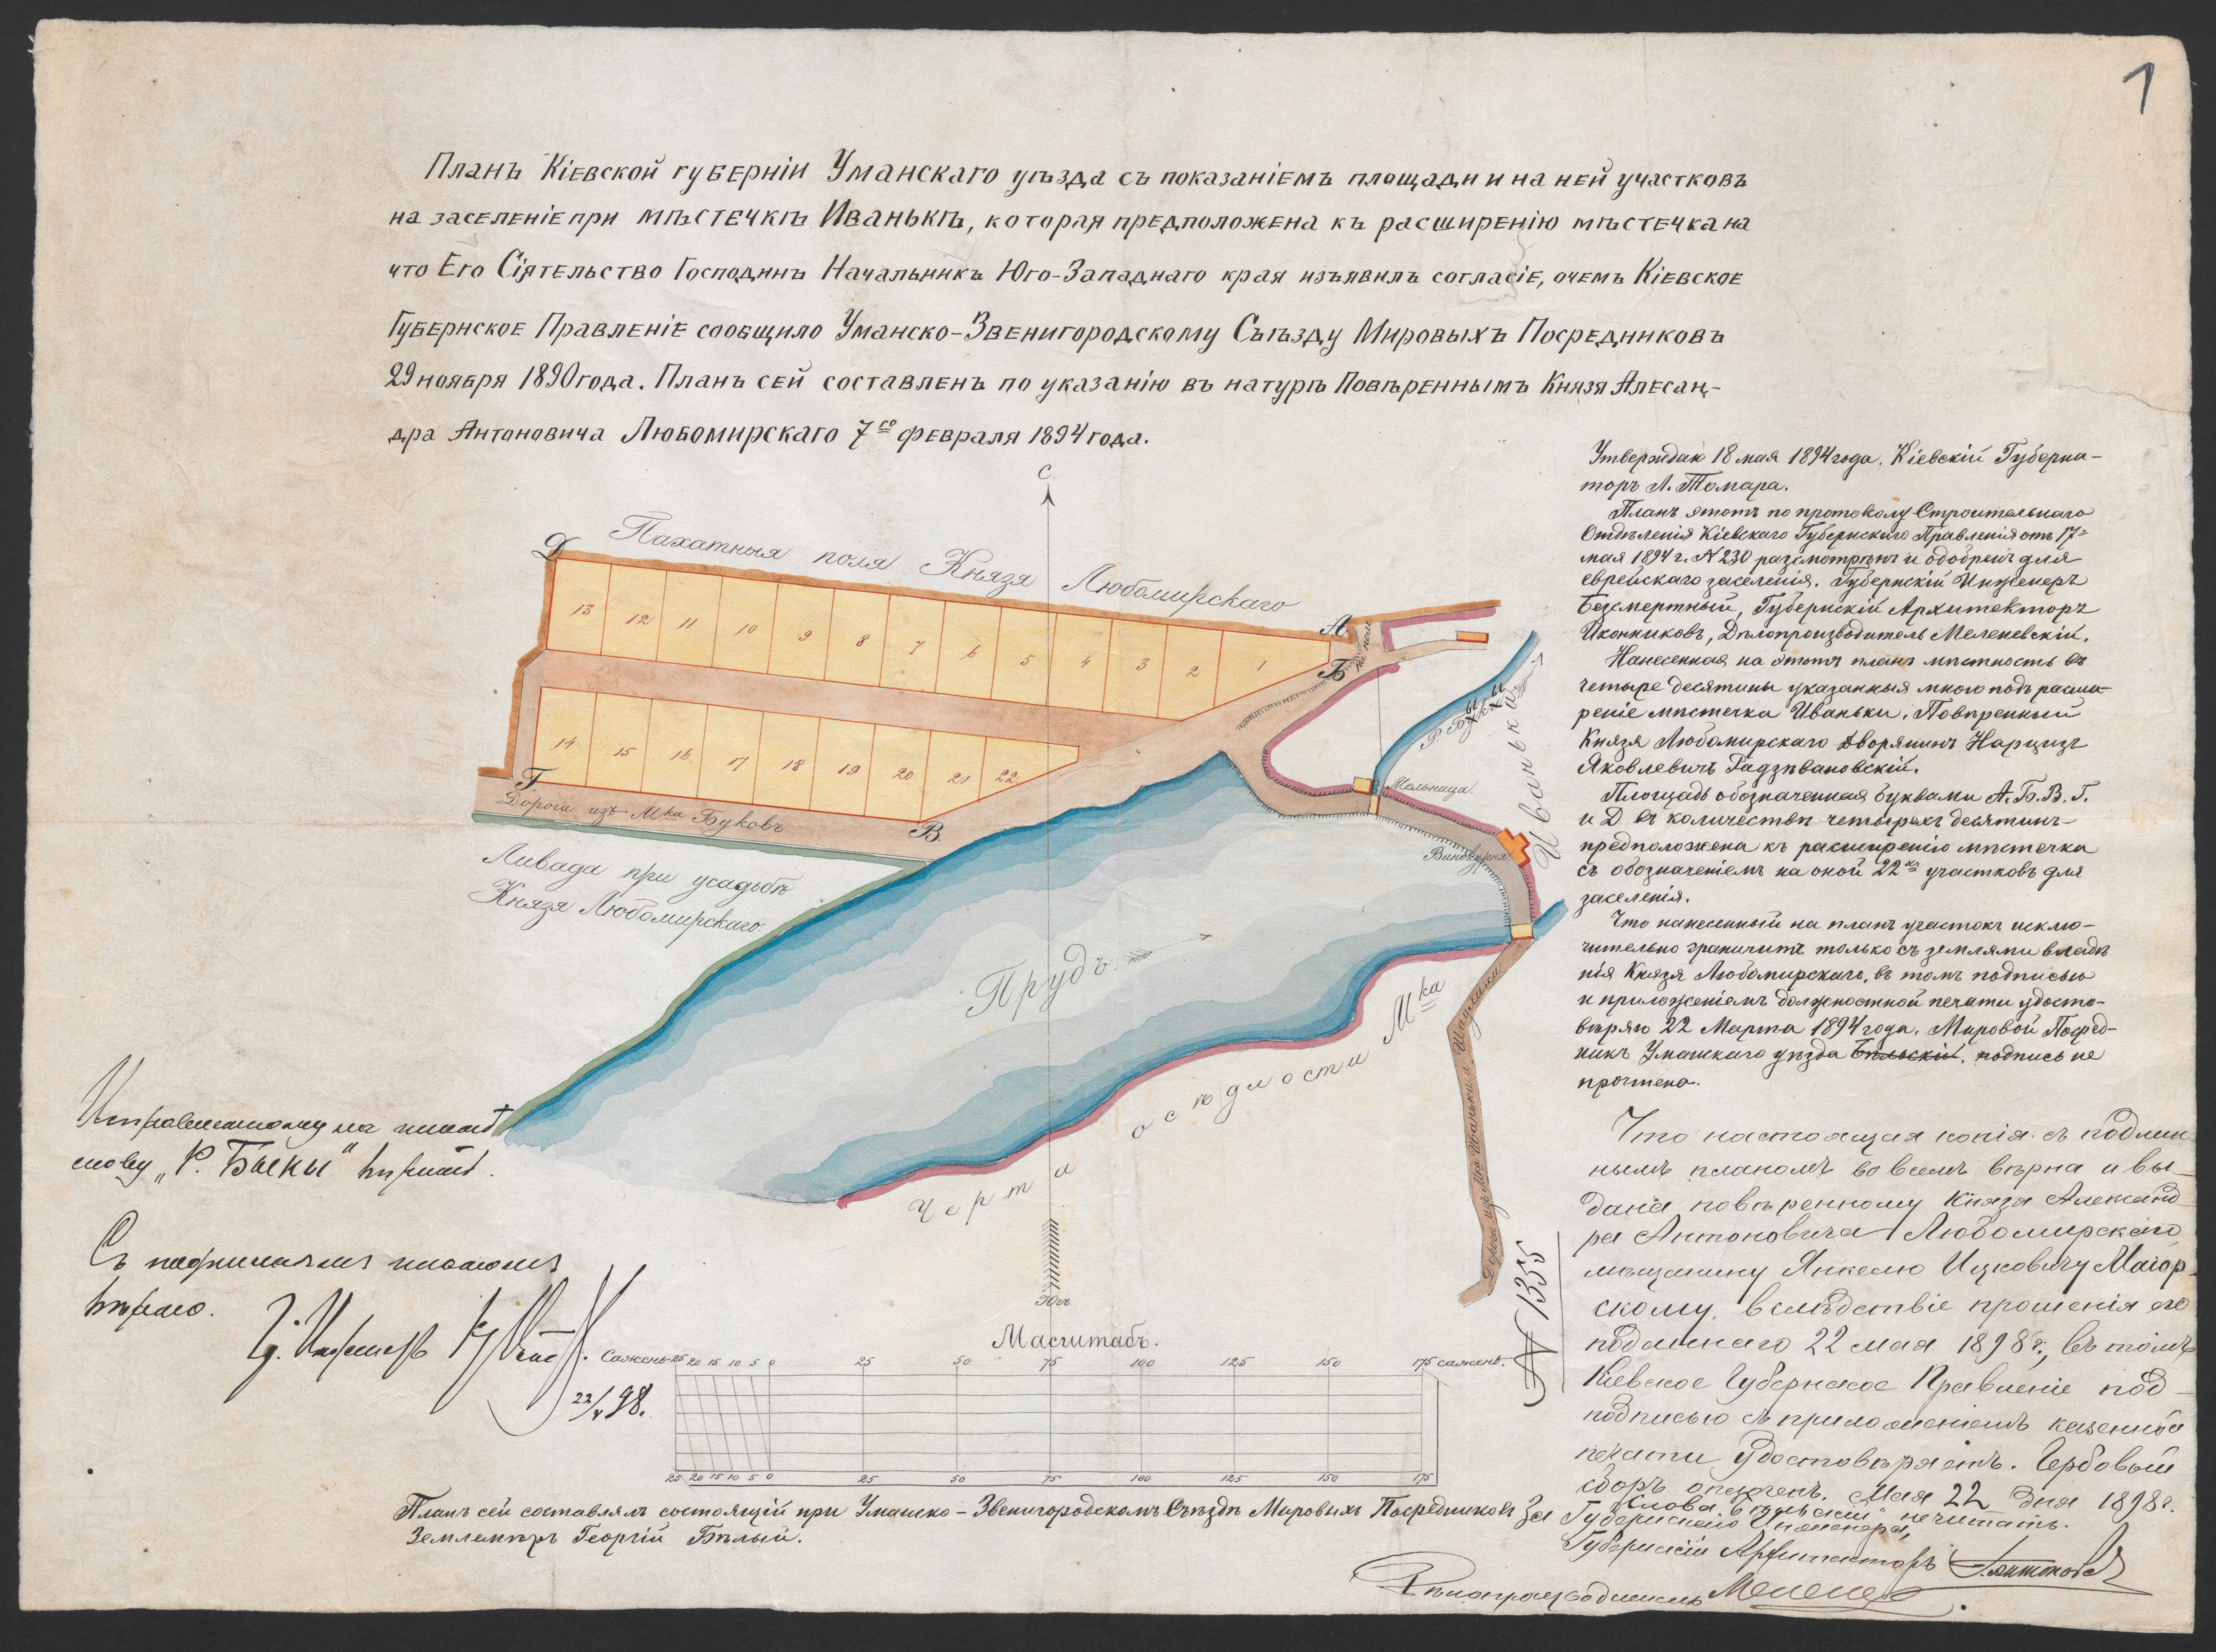 1
Планъ Кіевской губерніи Уманскаго уѣзда съ показаніемъ площади и на ней участковъ
на заселеніе при мѣстечкѣ Иванькѣ, которая предположена къ расширенію мѣстечка на
что Его Сіятельство Господинъ Начальникъ Юго-Западнаго края изъявилъ согласіе, очемъ Кіевское
Губернское Правленіе сообщило Уманско-Звенигородскому Съѣзду Мировыхъ Посредниковъ
29 ноября 1890 года. Планъ сей составленъ по указанію въ натурѣ Повѣреннымъ Князя Алесан-
дра Антоновича Любомирскаго 7го февраля 1894 года.
С.
Пахатныя поля Князя Любомирскаго
Д
А
Б
13 12 11 10 9 8 7 6 5 4 3 2 1
14 15 16 17 18 19 20 21 22
Г
В.
Дорога изъ Мка Буковъ
Ливада при усадьбѣ
Князя Любомирскаго.
Р.
Мельница.
Винокурня
Иванька
Прудъ
Черта осѣдлости Мка
Дорога изъ Мка Иваньки
Югъ.
Утверждаю 18 мая 1894 года. Кіевскій Губерна-
торъ Л. Томара.
Планъ этотъ по протоколу Строительнаго
Отдѣленія Кіевскаго Губернскаго Правленія отъ 17
мая 1894 г. N 230 разсмотрѣнъ и одобренъ для
еврейскаго заселенія. Губернскій Инженеръ
Безсмертный, Губернскій Архитекторъ
Иконниковъ, Дѣлопроизводитель Меленевскій.
Нанесенная на этотъ планъ мѣстность въ
четыре десятины указанныя мною подъ расши-
реніе мѣстечка Иваньки. Повѣренный
Князя Любомирскаго Дворянинъ Нарцизъ
Яковлевичъ
Площадь обозначенная буквами А. Б. В. Г.
и Д въ количествѣ четырехъ десятинъ
предположена къ расширенію мѣстечка
съ обозначеніемъ на оной 22хъ участковъ для
заселенія.
Что нанесенный на планъ участокъ исклю-
чительно граничитъ только съ землями владѣ
нія Князя Любомирскаго, въ томъ подписью
и приложеніемъ должностной печати удосто-
вѣряю 22 Марта 1894 года. Мировой Посред-
никъ Уманскаго уѣзда Бѣльскій. подпись не
прочтена.
Что настоящая копія съ подлин
нымъ планомъ во всемъ вѣрна и вы-
дана повѣренному Князя Александ
ра Антоновича Любомирскаго
мѣщанину Янкелю Ицковичу Маіор-
скому, вслѣдствіе прошенія его
поданнаго 22 мая 1898 г., въ томъ
Кіевское Губернское Правленіе под-
подписью съ приложеніемъ казенной
печати удостовѣряетъ. Гербовый
сборъ оплаченъ. Мая 22 дня 1898 г.
Слова Бѣльскій не читать.
За Губернскаго Инженера,
Губернскій Архитекторъ
Дѣлопроизводитель
N 1355
слову „Р. Быкы" вѣрить.
Съ подлиннымъ планомъ
вѣрно.
Г. Инженеръ
22/V 98.
Масштабъ.
Сажень 25 20 15 10 5 0 25 50 75 100 125 150 175 сажень.
25 20 15 10 5 0 25 50 75 100 125 150 175
Планъ сей составлялъ состоящій при Уманско-Звенигородскомъ Съѣздѣ Мировыхъ Посредниковъ
Землемѣръ Георгій Бѣлый.